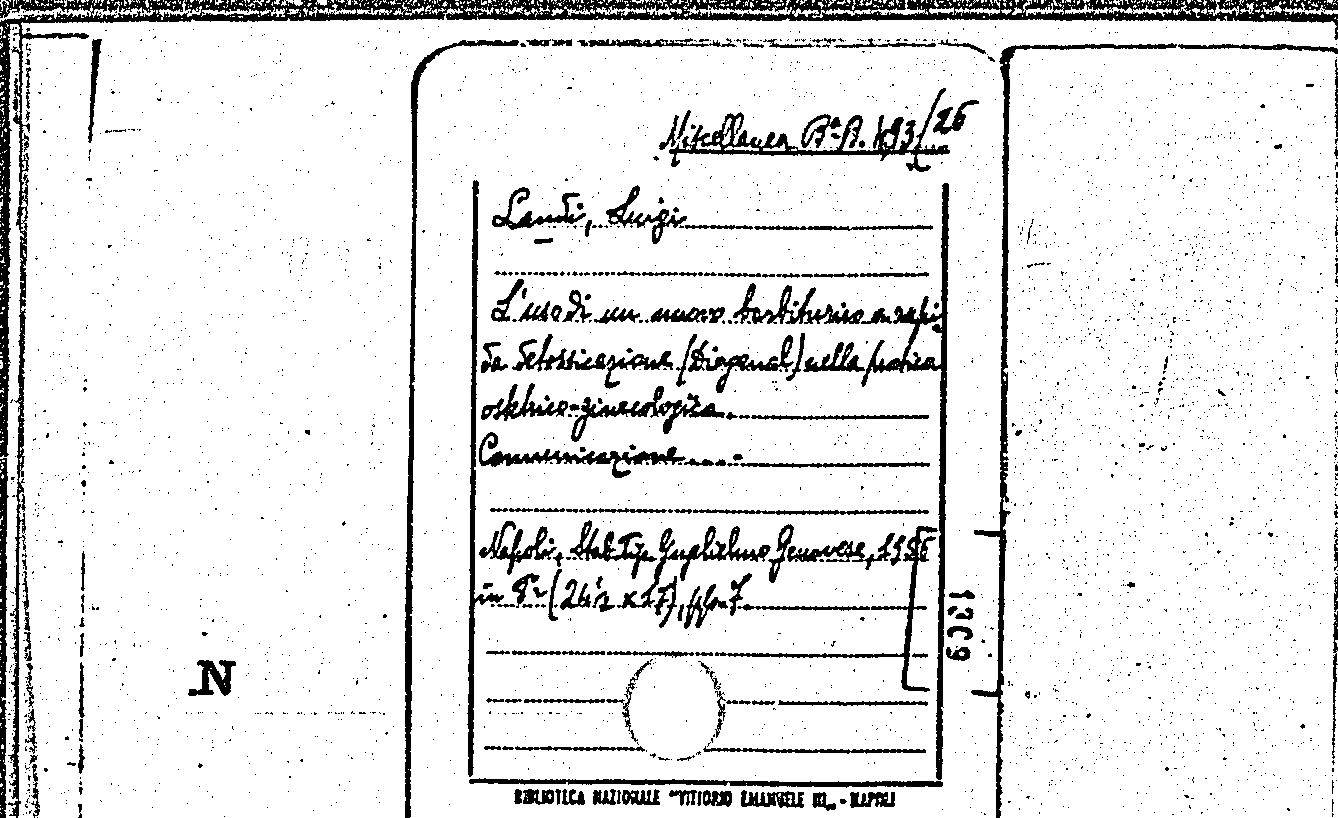 Miscellanea Bª B. 193/26
Landi, Luigi
L'uso di un nuovo barbiturico a rapi
da detossicazione (Diogenal) nella pratica
ostetrico-ginecologica.
Comunicazione....-
Napoli, Stab. Tip. Guglielmo Genovese, 1936
in 8° (24½ x 17), pp. 7.
1309
N
BIBLIOTECA NAZIONALE "VITTORIO EMANUELE III" - NAPOLI